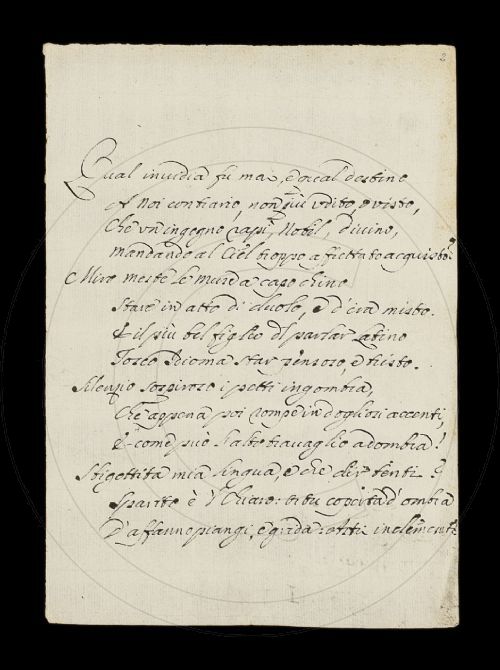 2
Qual invidia fu mai, e qual destino
A noi contrario, non più udito, e visto,
Che un ingegno rapì, Nobil, divino,
mandando al Ciel troppo affrettato acquisto?
Miro meste le Muse a capo chino
Stare in atto di duolo, e d'ira misto.
E il più bel figlio del parlar Latino
Tosco Idioma star pensoso, e tristo.
Silenzio sospiroso i petti ingombra,
Che appena poi rompe in dogliosi accenti,
E come può s'alto travaglio adombra!
Sbigottita mia lingua, e che dir tenti?
Sparito è 'l Chiaro: or tu coperta d'ombra
D'affanno piangi, e grida: Astri inclementi